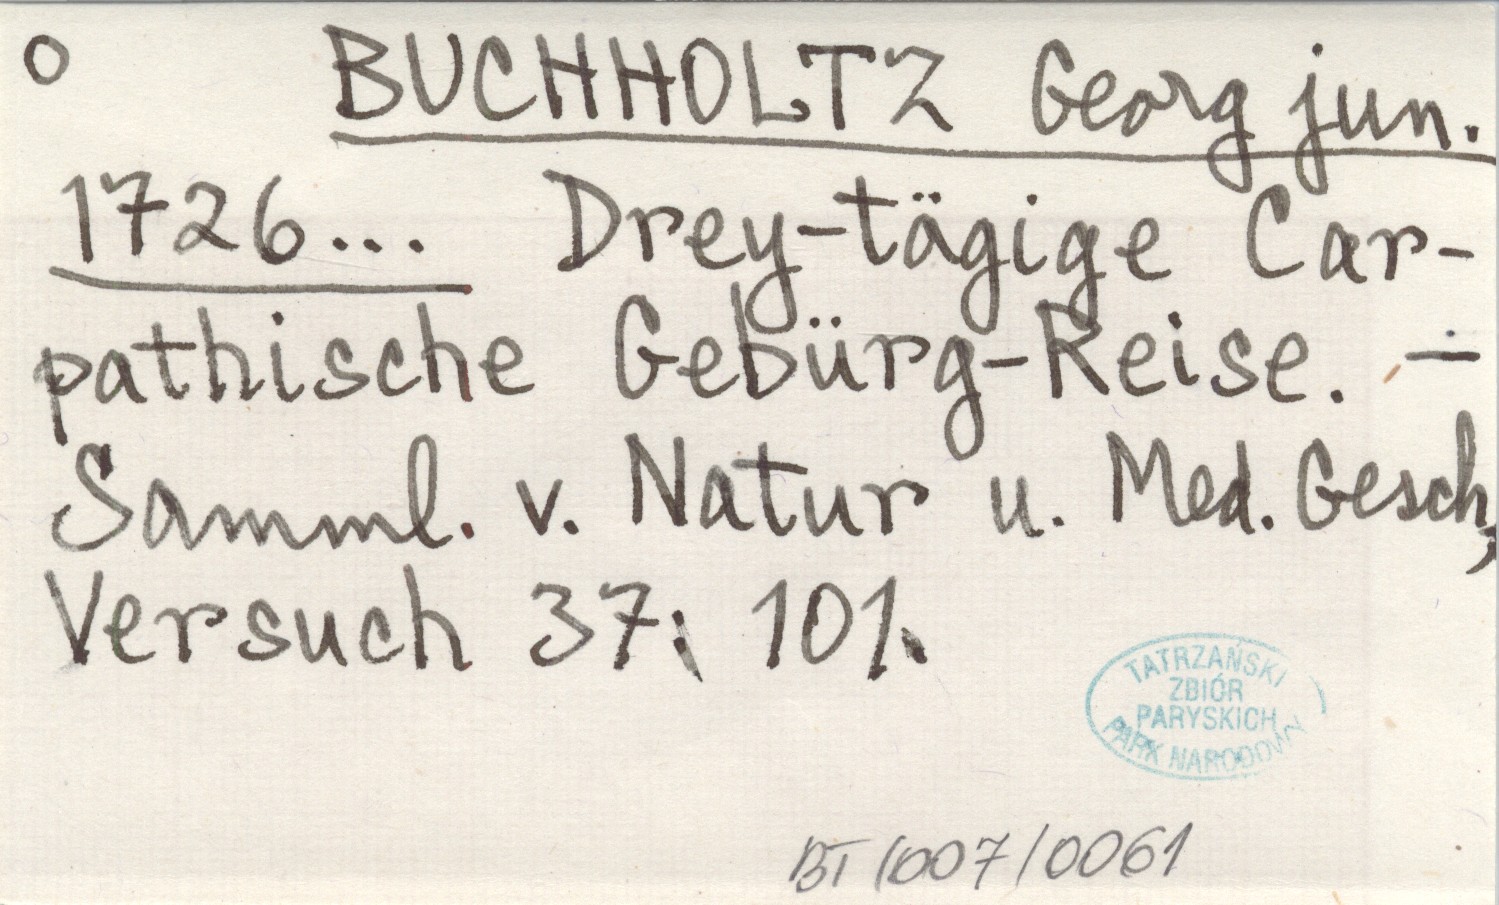 o BUCHHOLTZ Georg jun.
1726... Drey-tägige Car-
pathische Gebürg-Reise. —
Samml. v. Natur u. Med. Gesch,
Versuch 37: 101.
TATRZAŃSKI
ZBIÓR
PARYSKICH
PARK NARODOWY
BT/007/0061